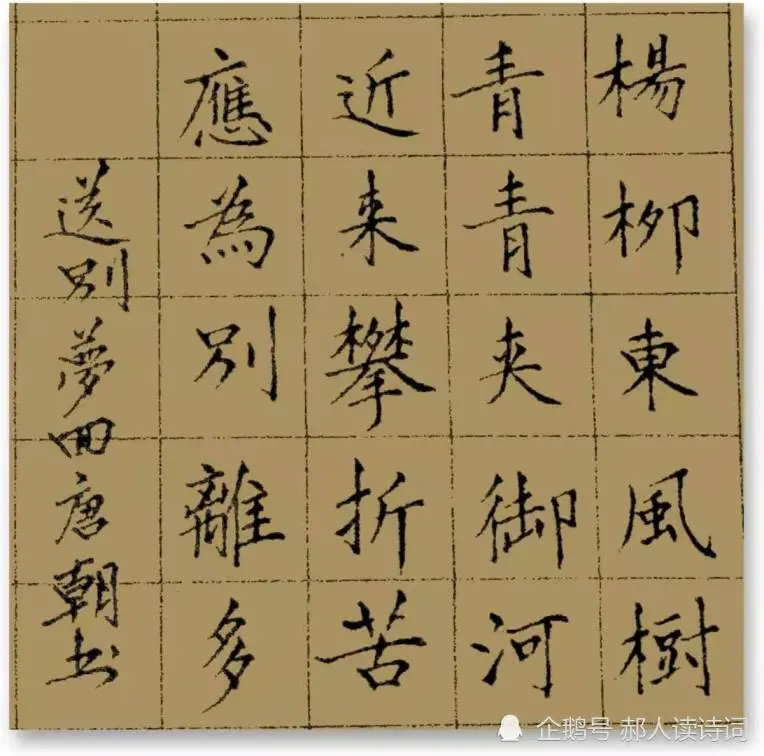 楊柳東風樹
青青夾御河
近来攀折苦
應為別離多
送別夢回唐朝书
企鹅号 郝人读诗词